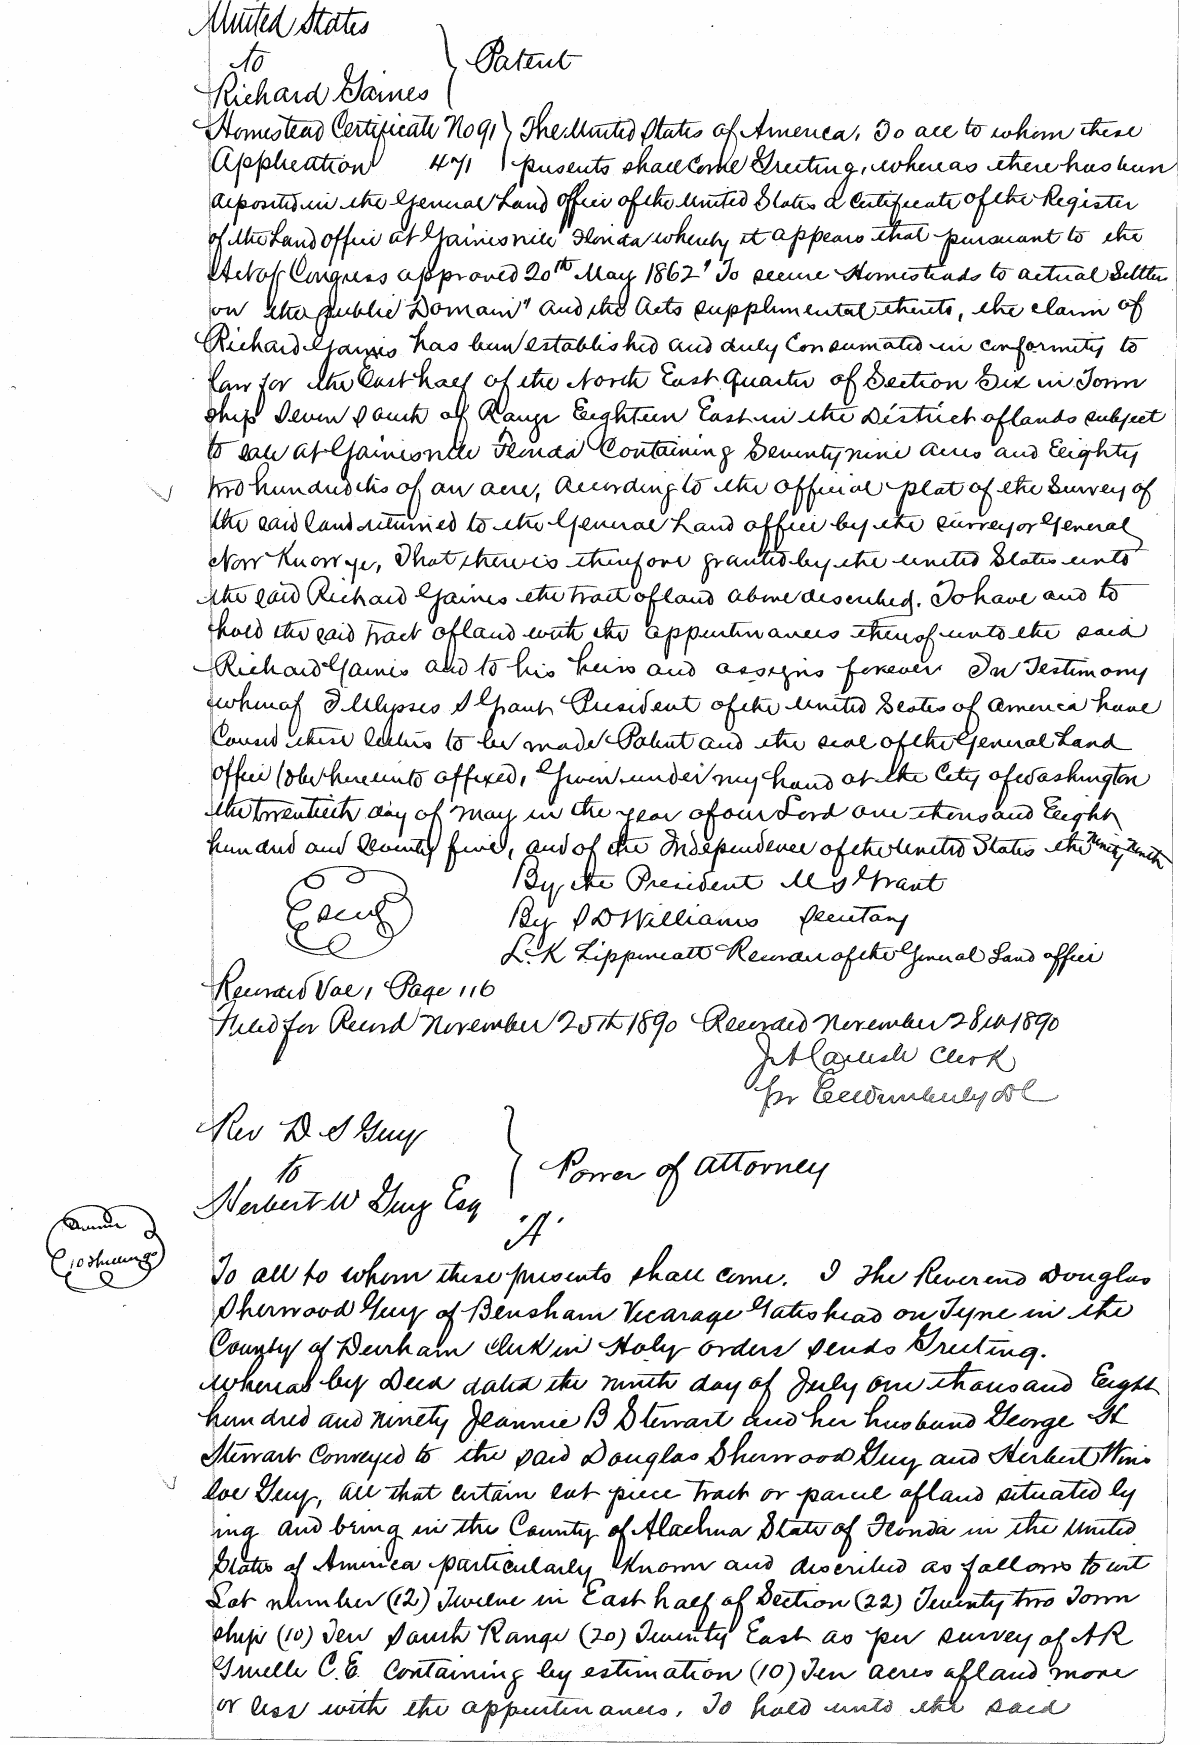 United States
to
Richard Gaines } Patent
Homestead Certificate No 91 } The United States of America, To all to whom these
Application 471 } presents shall come Greeting, whereas there has been
deposited in the General Land office of the United States a certificate of the Register
of the Land office at Gainesville Florida whereby it appears that pursuant to the
Act of Congress approved 20th May 1862 "To secure Homesteads to actual Settlers
on the public Domain" and the Acts supplimental thereto, the claim of
Richard Gaines has been established and duly Consumated in conformity to
law for the East half of the North East Quarter of Section Six in Town
ship Seven South of Range Eighteen East in the District of lands subject
to sale at Gainesville Florida Containing Seventy nine acres and Eighty
two hundredths of an acre, According to the official plat of the Survey of
the said land returned to the General Land office by the surveyor General
Now Know ye, That there is therefore granted by the united States unto
the said Richard Gaines the tract of land above described. To have and to
hold the said tract of land with the appurtinances thereof unto the said
Richard Gaines and to his heirs and assigns forever In Testimony
whereof I Ulysses S Grant President of the United States of America have
Caused these letters to be made Patent and the seal of the General Land
office to be hereunto affixed, Given under my hand at the City of Washington
the twentieth day of May in the year of our Lord one thousand Eight
hundred and Seventy five, and of the Independence of the United States the Ninety Ninth
Seal By the President U S Grant
By S D Williams Secretary
L. K Lippincott Recorder of the General Land office
Recorded Vol 1 Page 116
Filed for Record November 25th 1890 Recorded November 28th 1890
J A Carlisle Clerk
per Wimberly DC
Rev D S Guy
to } Power of attorney
Herbert W Guy Esq
"A"
10 Shillings
To all to whom these presents shall come. I The Reverend Douglas
Sherwood Guy of Bensham Vicarage Gateshead on Tyne in the
County of Durham Clerk in Holy orders sends Greeting.
Whereas by Deed dated the ninth day of July one thousand Eight
hundred and ninety Jeannie B Stewart and her husband George H
Stewart Conveyed to the said Douglas Sherwood Guy and Herbert Wins
loe Guy, all that certain lot piece tract or parcel of land situated ly
ing and being in the County of Alachua State of Florida in the United
States of America particularly known and discribed as follows to wit
Lot number (12) Twelve in East half of Section (22) Twenty two Town
ship (10) Ten South Range (20) Twenty East as per survey of A R
C. E. Containing by estimation (10) Ten acres of land more
or less with the appurtinances. To hold unto the said